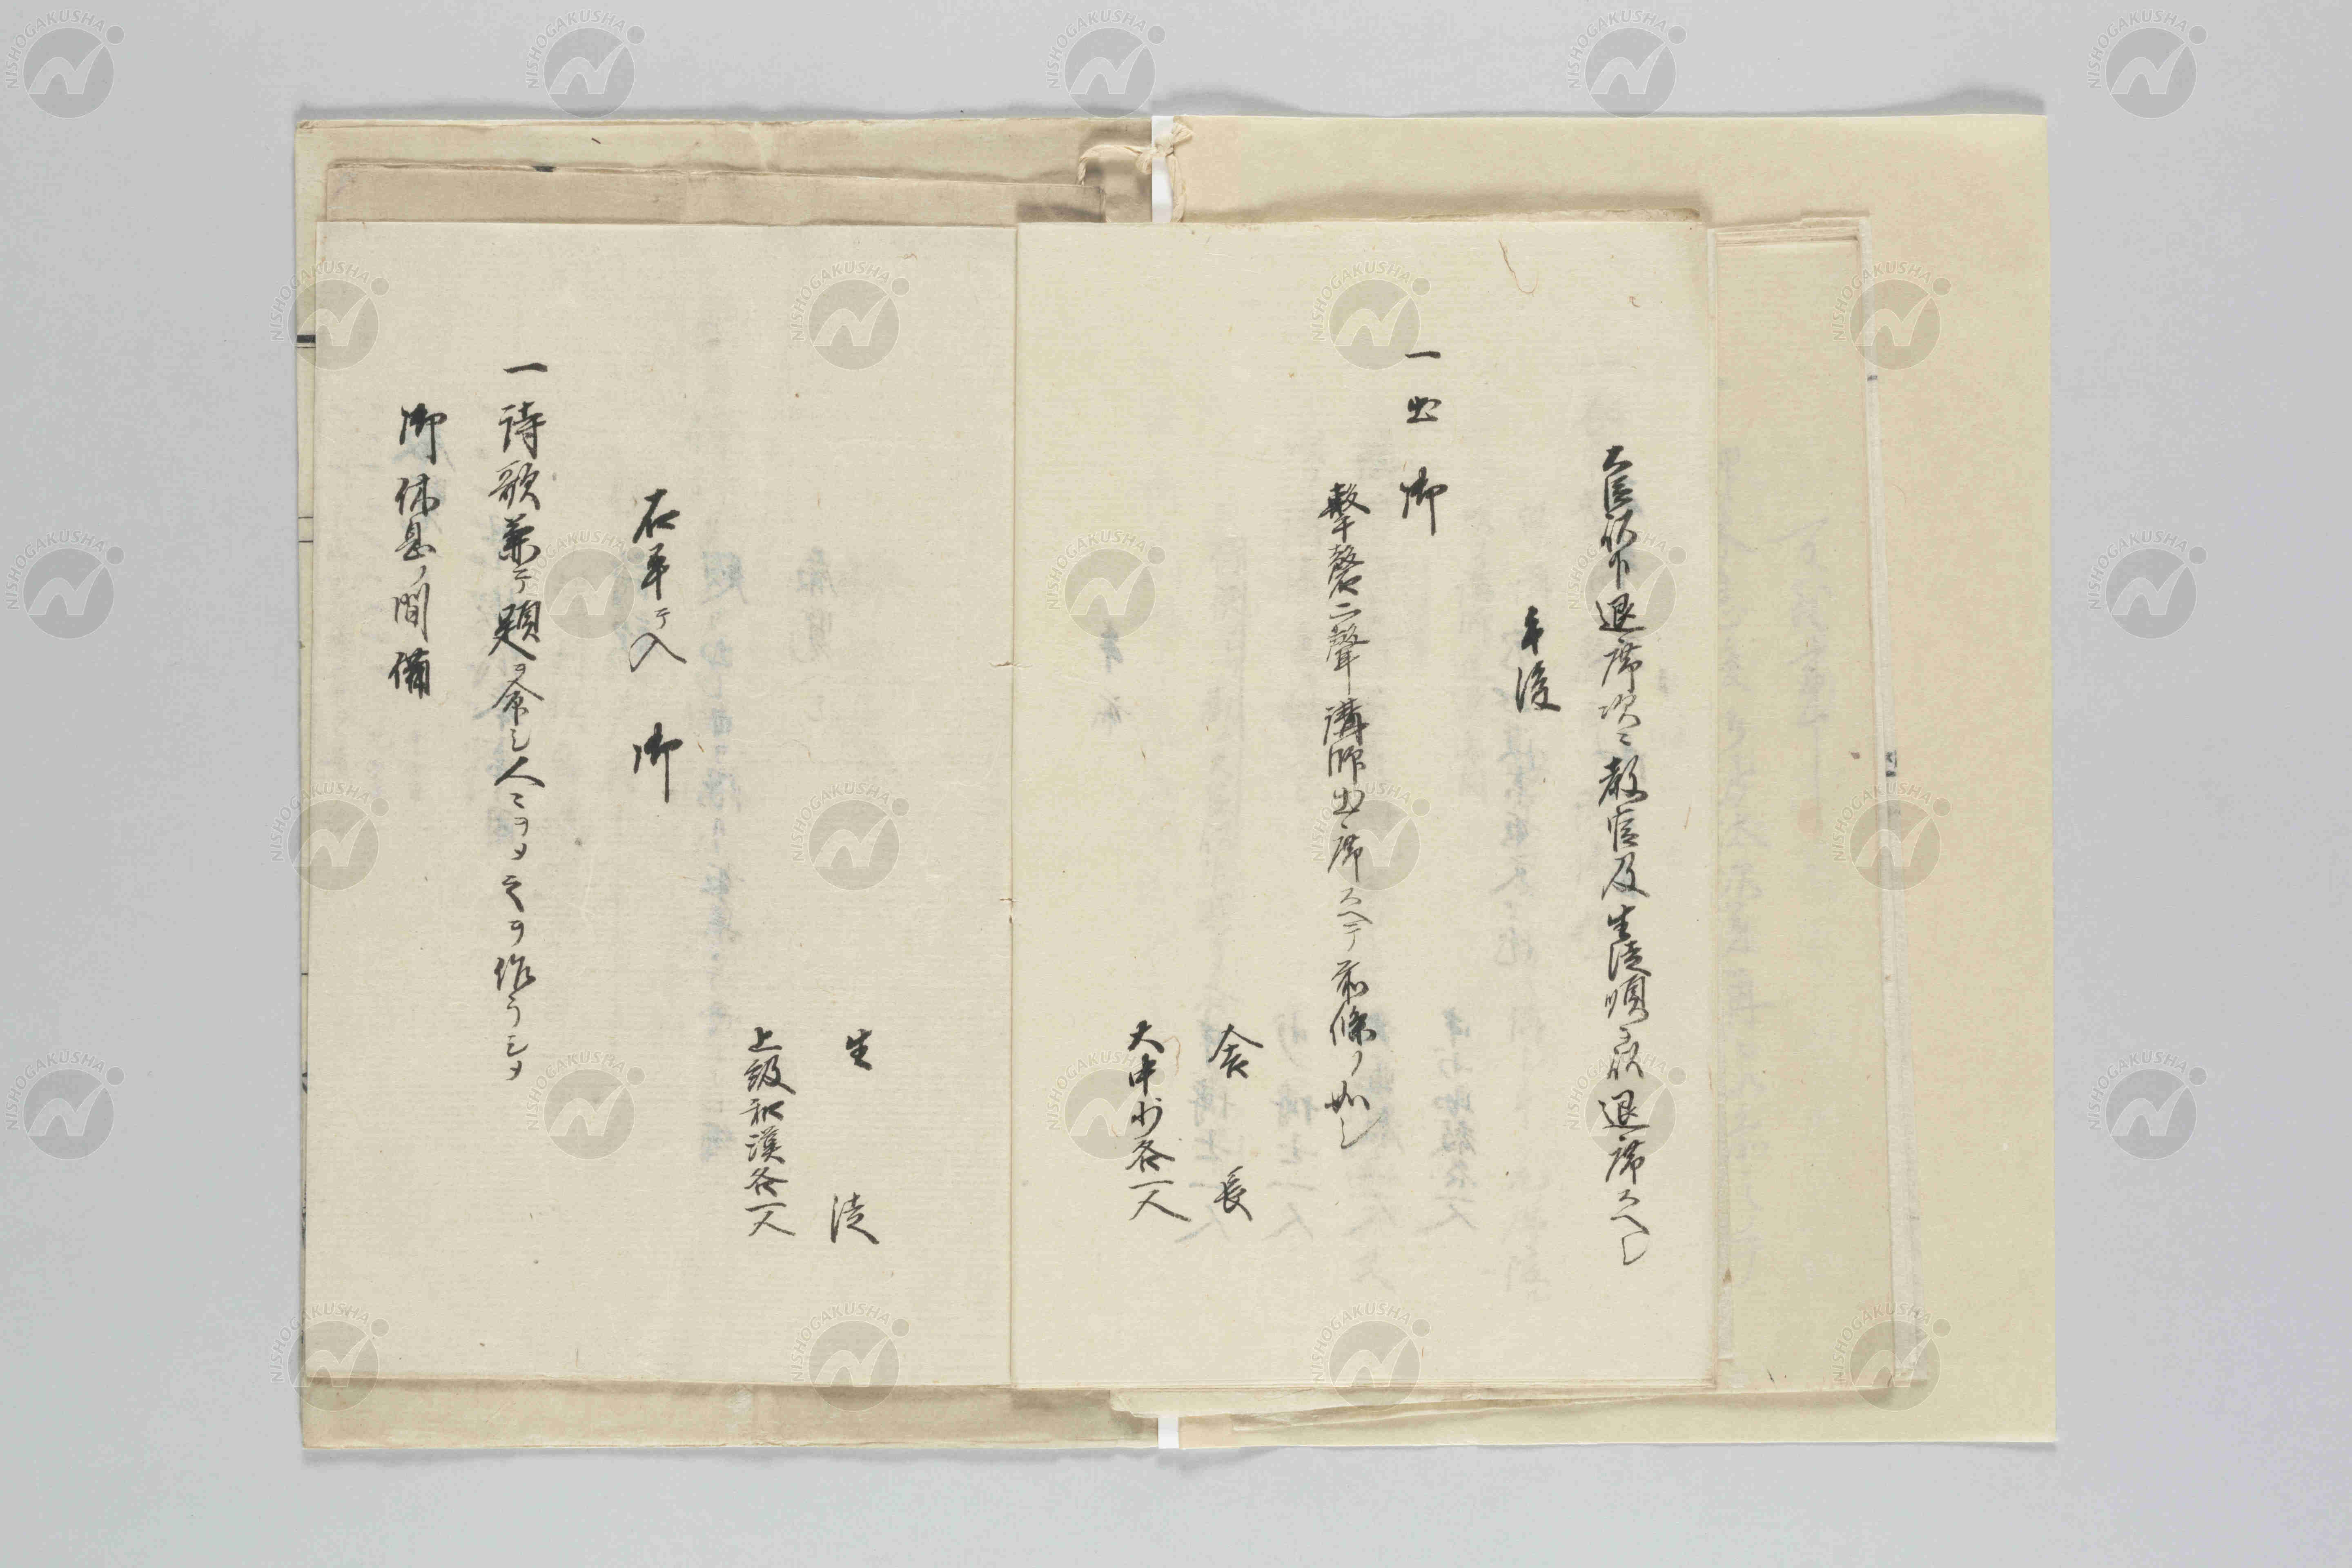 大臣以下退席次ニ教官及生徒順ヲ以退席スヘシ
午後
一出御
撃磬二聲講師出席スヘテ前條ノ如シ
舎長
大中少各一人
生徒
上級和漢各一人
右畢テ入御
一詩歌兼テ題ヲ命シ人ニヲメ之ヲ作ラシメ
御休息ノ間備